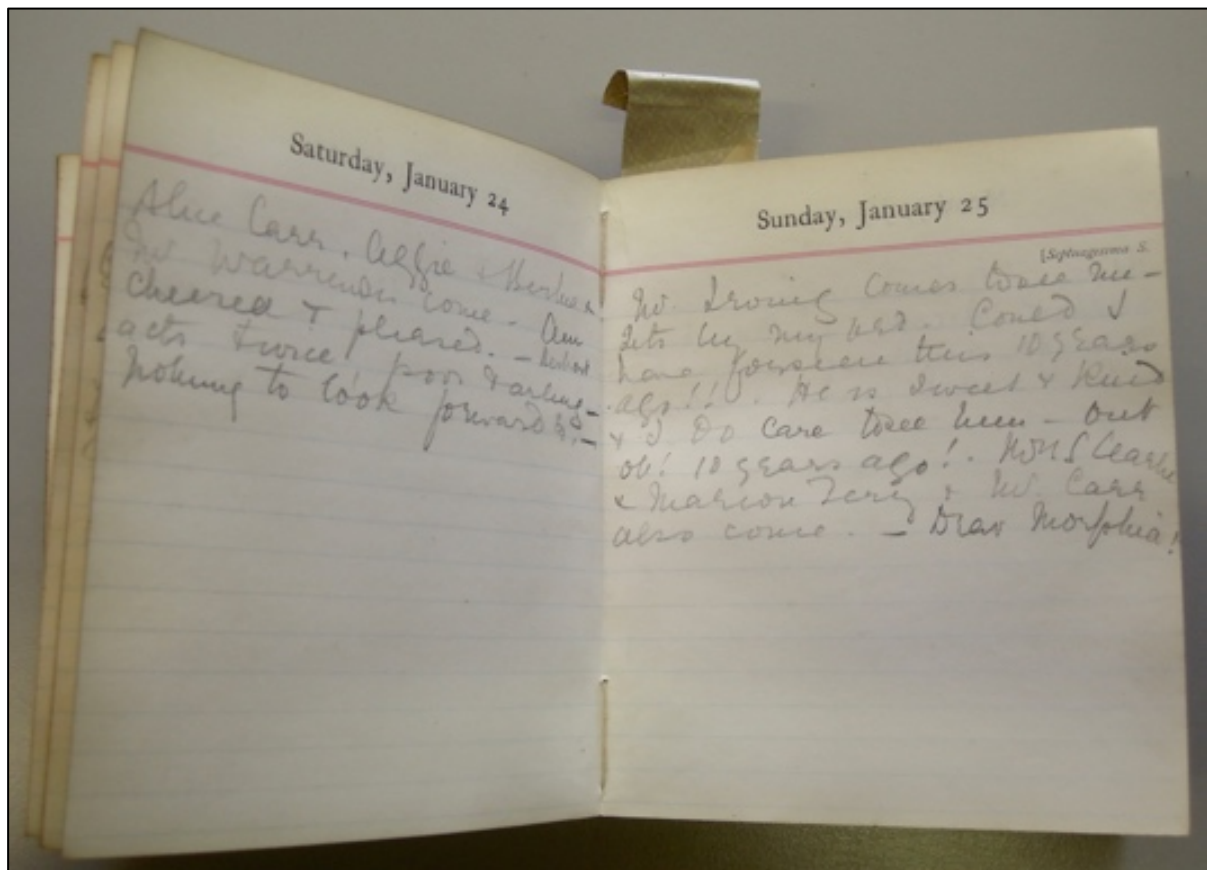 Saturday, January 24
Alice Carr. Aggie &
Mr Warrender come. Am
cheered & pleased. – Herbert
acts twice, poor darling –
Nothing to look forward to. –
Sunday, January 25
[Septuagesima S.
Mr. Irving comes to see me –
sits by my bed. Could I
have foreseen this 10 years
ago!! . He is sweet & kind
& I do care to see him – but
oh! 10 years ago! .
& Marion Terry & Mr. Carr
also come. – Dear Morphia!